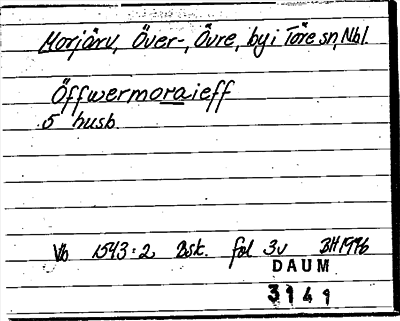 Morjärv, Över-, Övre, by i Töre sn, Nbl.
Öffwermoraieff
5 husb.
Vb 1543:2 Bsk. fol 3v BH 1996
DAUM
3141